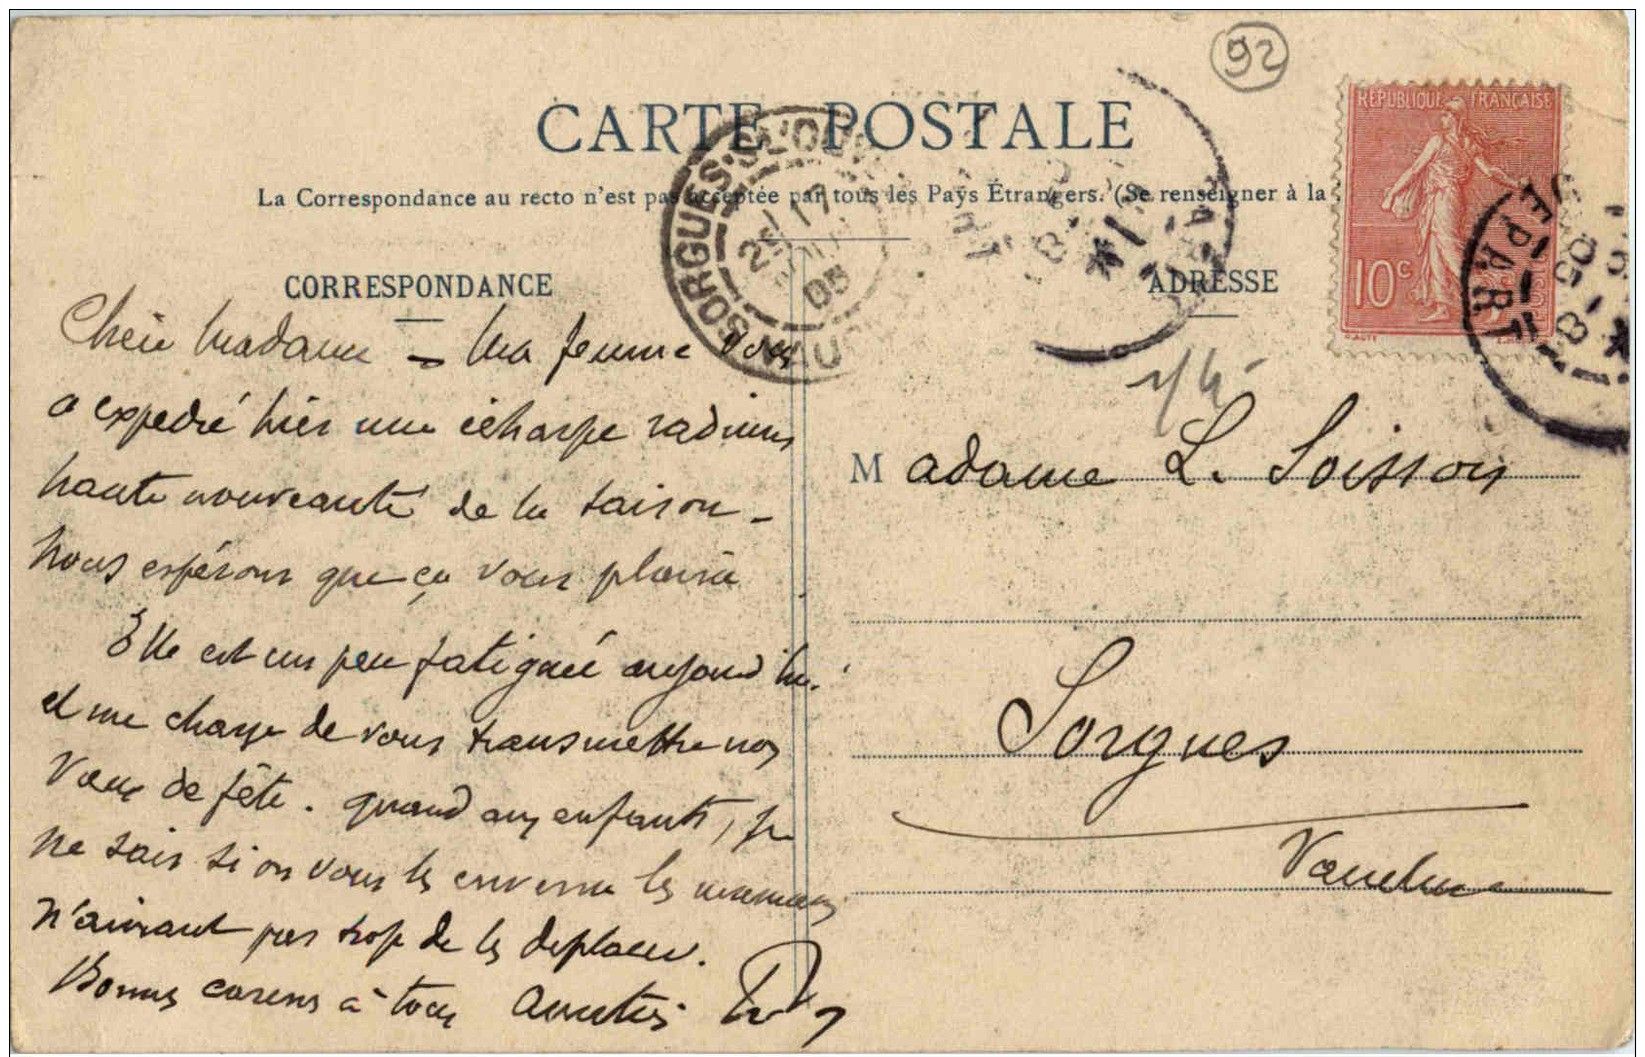 92
CARTE POSTALE
La Correspondance au recto n'est pas acceptée par tous les Pays Étrangers. (Se renseigner à la
RÉPUBLIQUE FRANÇAISE
10c
POSTES
SORGUES-S-L'OUVÈZE
25
05
VAUCLUSE
CORRESPONDANCE
Chère Madame – Ma femme vous
a expédié hier une écharpe radium
haute nouveauté de la saison –
Nous espérons que ça vous plaira
Elle est un peu fatiguée aujourd'hui
et me charge de vous transmettre nos
vœux de fête. quand aux enfants, je
ne sais si on vous les enverra les mamans
n'aimant pas trop de les déplacer.
Bonnes caresses à tous Amitiés
ADRESSE
Madame L. Soisson
Sorgues
Vaucluse